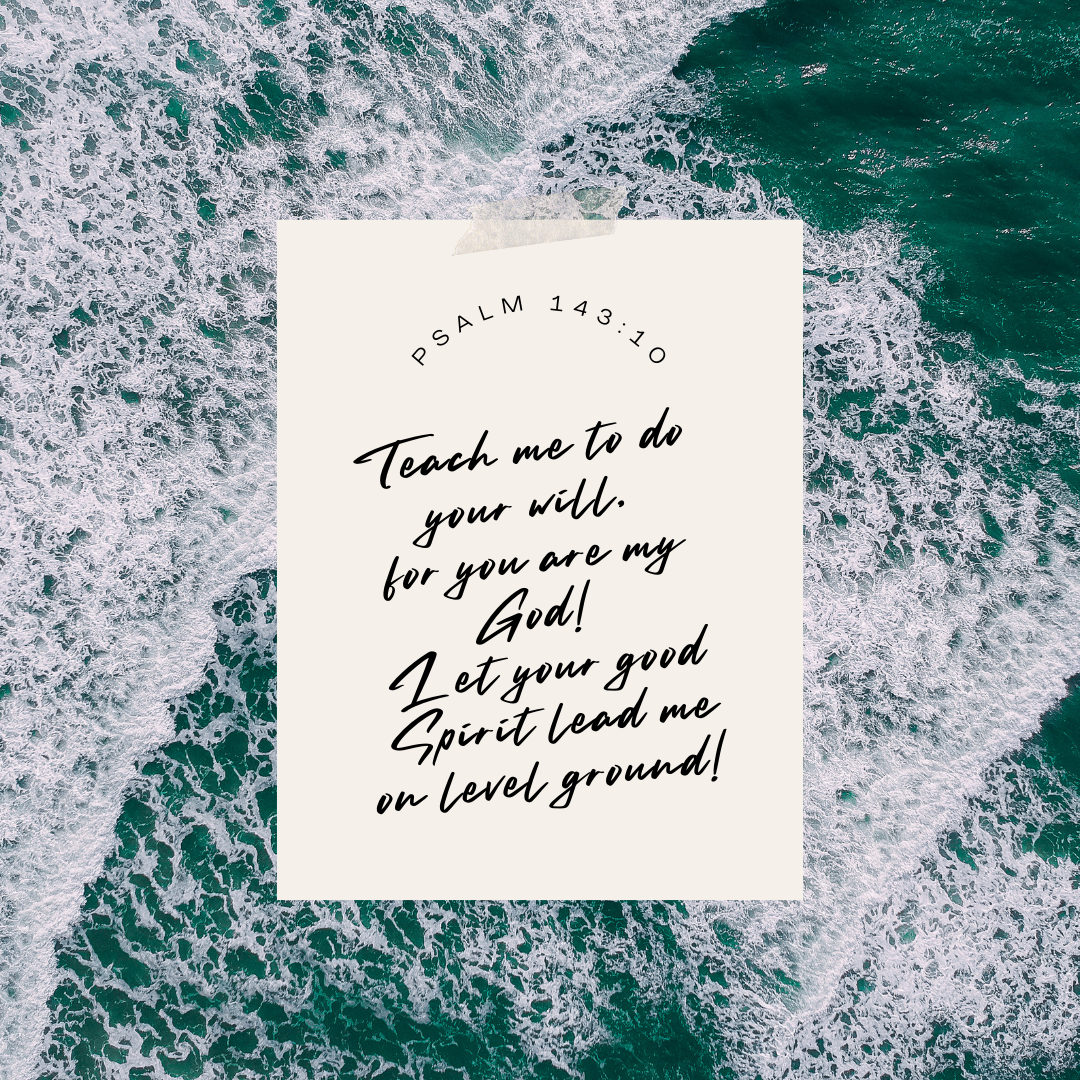 PSALM 143:10
Teach me to do
your will.
for you are my
God!
Let your good
Spirit lead me
on level ground!